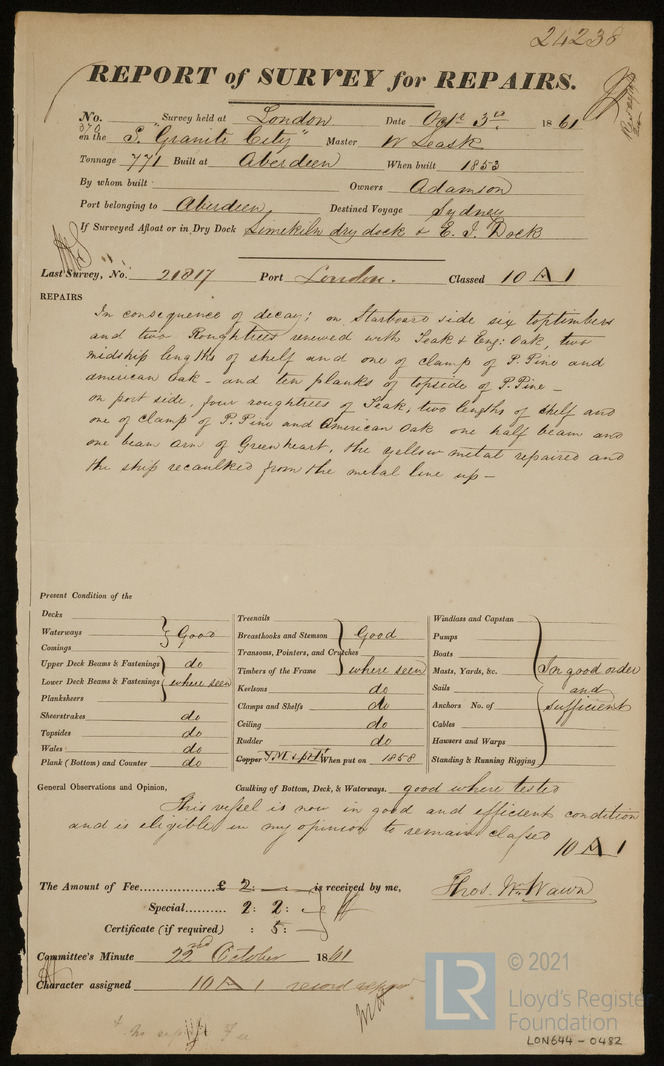 24238
REPORT of SURVEY for REPAIRS.
No. 370 Survey held at London Date Octr. 3rd 1861
on the S. "Granite City" Master W Leask
Tonnage 771 Built at Aberdeen When built 1853
By whom built Owners Adamson
Port belonging to Aberdeen Destined Voyage Sydney
If Surveyed Afloat or in Dry Dock Limekiln dry dock & E. I. Dock
Last Survey, No. 21817 Port London. Classed 10 A 1
REPAIRS
In consequence of decay; on Starboard side six toptimbers
and two Roughtrees renewed with Teak & Eng: Oak, two
midship lengths of shelf and one of clamp of P. Pine and
american Oak – and ten planks of topside of P. Pine –
on port side, four roughtrees of Teak, two lengths of shelf and
one of clamp of P. Pine and American Oak one half beam and
one beam arm of Greenheart, the yellow metal repaired and
the ship recaulked from the metal line up –
Present Condition of the
Decks
Waterways Good
Comings
Upper Deck Beams & Fastenings do
Lower Deck Beams & Fastenings where seen
Planksheers
Sheerstrakes do
Topsides do
Wales do
Plank (Bottom) and Counter do
Treenails
Breasthooks and Stemson Good
Transoms, Pointers, and Crutches
Timbers of the Frame where seen
Keelsons do
Clamps and Shelfs do
Ceiling do
Rudder do
Copper Y.M. & ptd When put on 1858
Windlass and Capstan
Pumps
Boats
Masts, Yards, &c. In good order
Sails and
Anchors No. of sufficient
Cables
Hawsers and Warps
Standing & Running Rigging
General Observations and Opinion, Caulking of Bottom, Deck, & Waterways. good where tested
This vessel is now in good and efficient condition
and is eligible in my opinion to remain classed
10 A 1
The Amount of Fee............£ 2: is received by me,
Special.......... 2: 2: Thos. Wm Wawn
Certificate (if required) : 5:
Committee's Minute 22nd October 1861
Character assigned 10 A 1 record repairs
LR
© 2021
Lloyd's Register
Foundation
LON644-0482